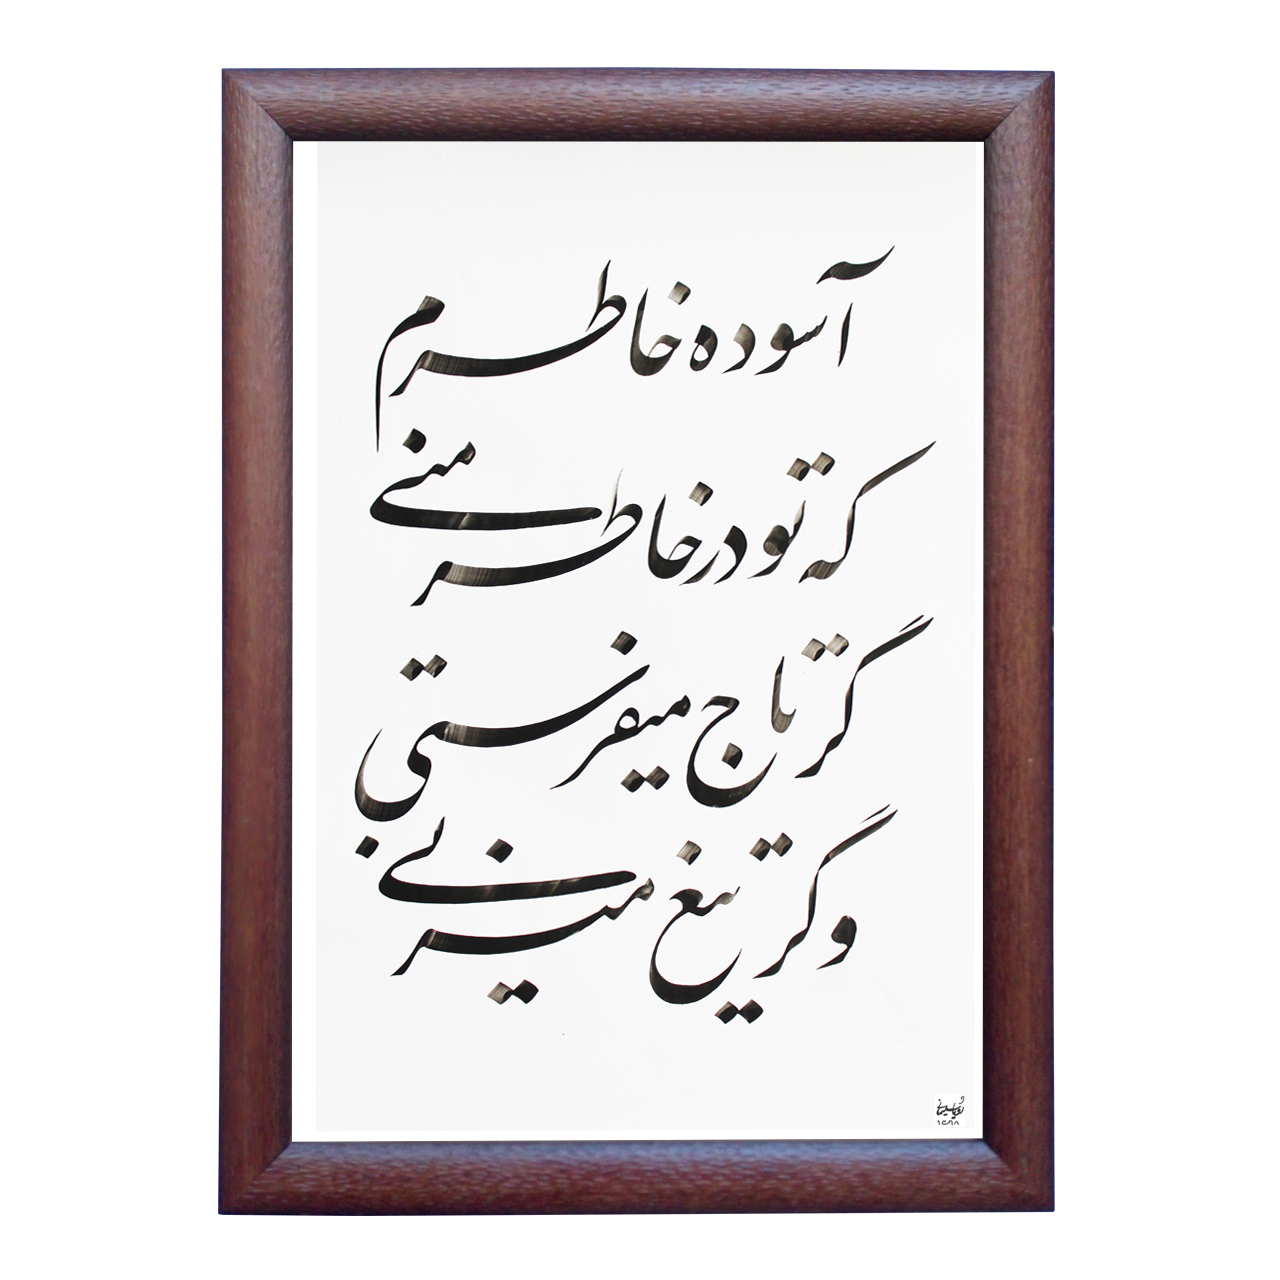 آسوده خاطرم
که تو در خاطر منی
گر تاج میفرستی
و گر تیغ میزنی
۱۳۹۸